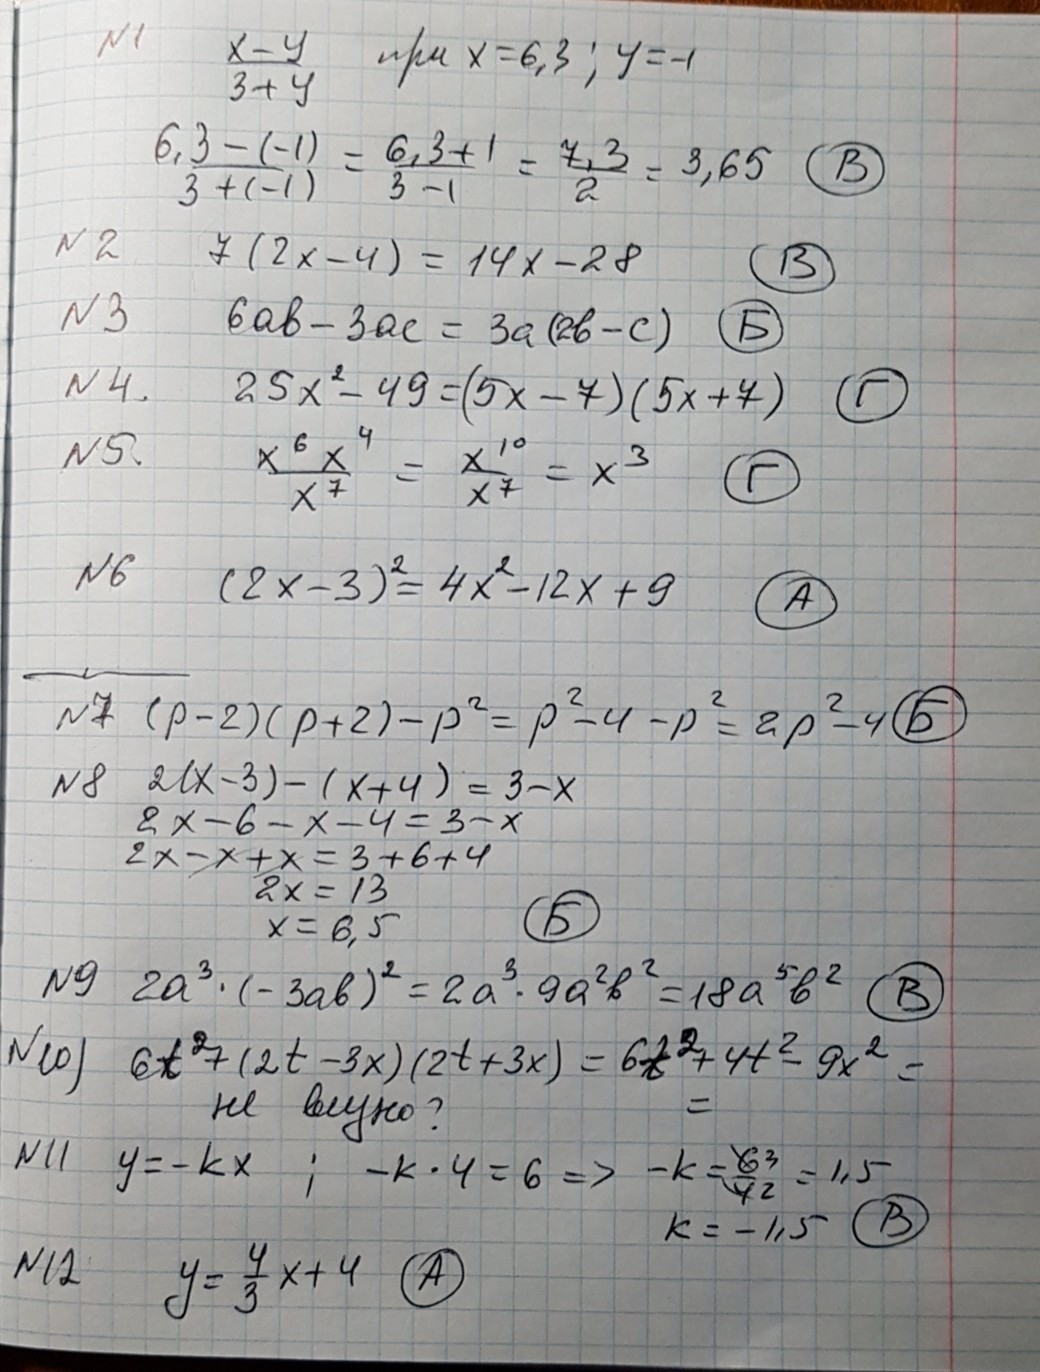 N1 x-y/3+y при x=6,3; y=-1
6,3-(-1)/3+(-1) = 6,3+1/3-1 = 7,3/2 = 3,65 В
N2 7(2x-4) = 14x-28 В
N3 6ab-3ac = 3a(2b-c) Б
N4. 25x²-49=(5x-7)(5x+7) Г
N5. x⁶x⁴/x⁷ = x¹⁰/x⁷ = x³ Г
N6 (2x-3)²=4x²-12x+9 А
N7 (p-2)(p+2)-p²=p²-4-p²=2p²-4 Б
N8 2(x-3)-(x+4)=3-x
2x-6-x-4=3-x
2x-x+x=3+6+4
2x=13
x=6,5 Б
N9 2a³·(-3ab)²=2a³·9a²b²=18a⁵b² В
N10) 6t²+(2t-3x)(2t+3x)=6t²+4t²-9x²=
не видно? =
N11 y=-kx ; -k·4=6 => -k=63/42=1,5
k=-1,5 В
N12 y=4/3x+4 А